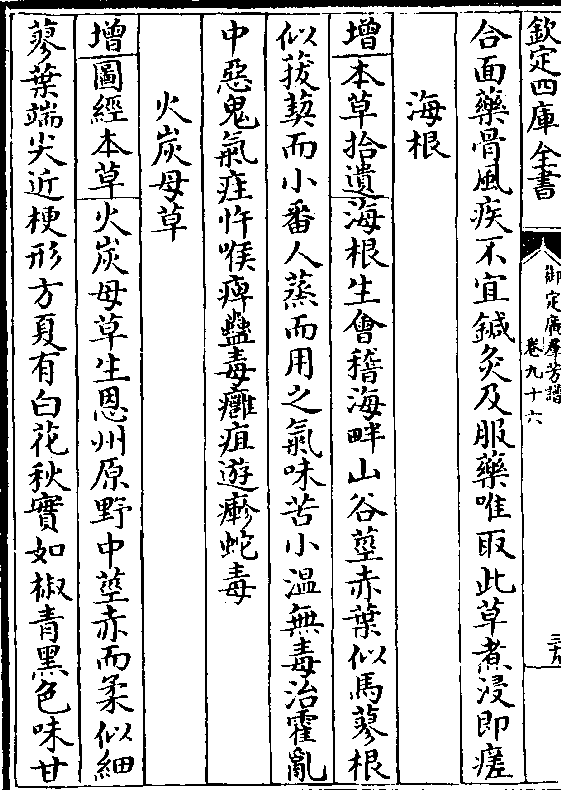 欽定四庫全書
御定廣羣芳譜
卷九十六
三九
合面藥骨風疾不宜鍼灸及服藥唯取此草煮浸即瘥
海根
增本草拾遺海根生會稽海畔山谷莖赤葉似馬蓼根
似菝葜而小番人蒸而用之氣味苦小溫無毒治霍亂
中惡鬼氣疰忤喉痺蠱毒癰疽遊瘮蛇毒
火炭母草
增圖經本草火炭母草生恩州原野中莖赤而柔似細
蓼葉端尖近梗形方夏有白花秋實如椒青黑色味甘